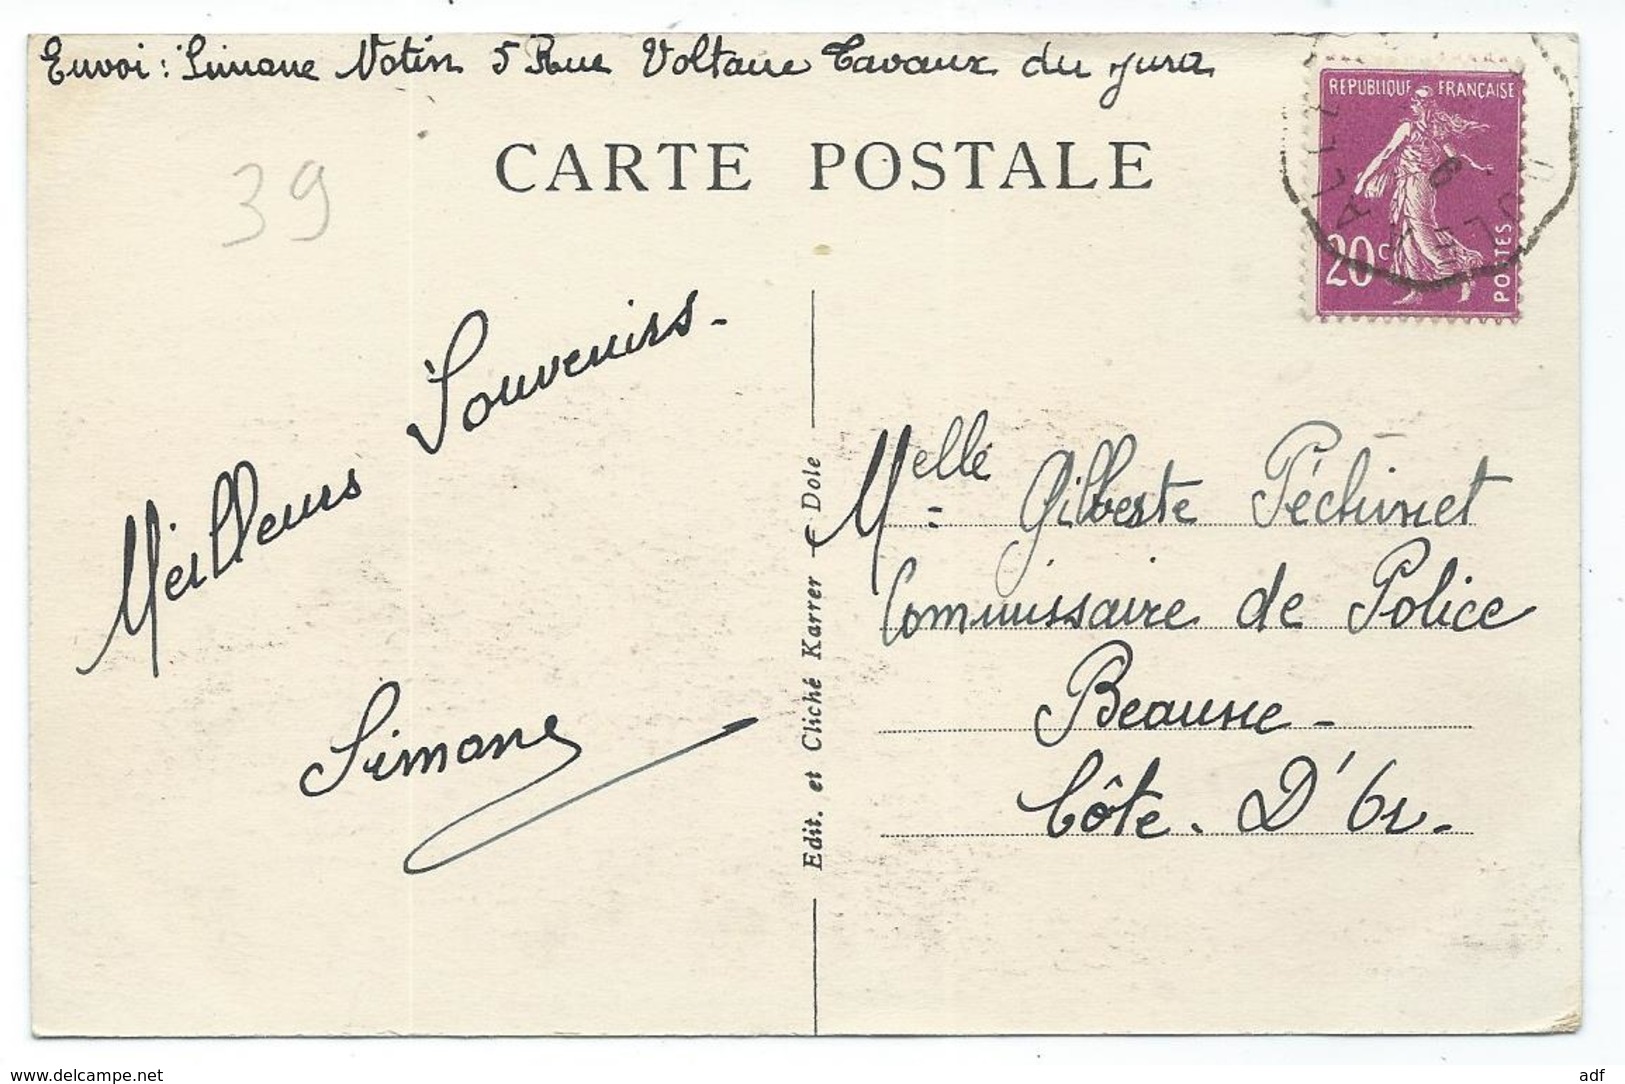 Envoi : Simone Notin 5 Rue Voltaire Tavaux du Jura
CARTE POSTALE
39
REPUBLIQUE FRANÇAISE
20c
POSTES
Meilleurs Souvenirs -
Simone
Edit. et Cliché Karrer - Dole
Melle Gilberte Péchinet
Commissaire de Police
Beaune -
Côte. D'Or.
www.delcampe.net
adf